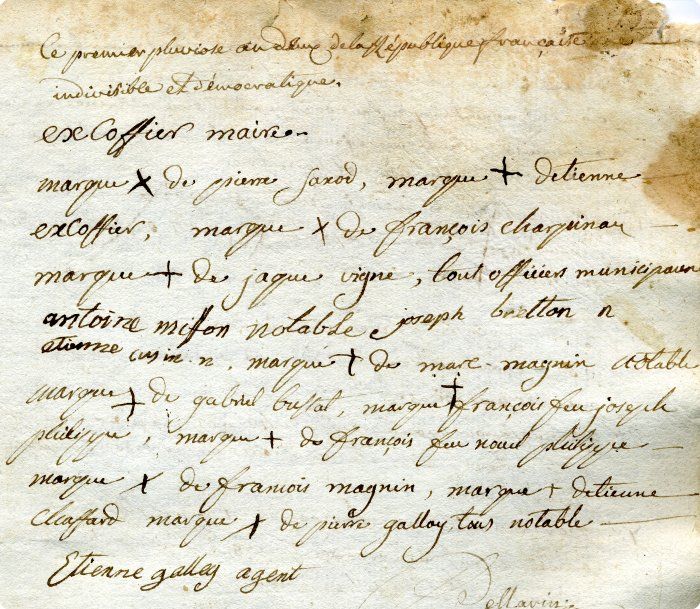 Ce premier pluviose an deux de la République française
indivisible et démocratique.
exCoffier maire
marque X de pierre Saxod, marque + detienne
exCoffier, marque x de françois charpinau
marque + de jaque vigne, tout officiers municipaux
antoine misson notable joseph bretton n
etienne cusin n, marque + de marc magnin notable
marque + de gabriel bussat, marque + françois feu joseph
philippe, marque + de françois feu noel philippe
marque x de francois magnin, marque + detienne
Chaffard marque x de pierre galloy, tous notable
Etienne galley agent
Dellavin